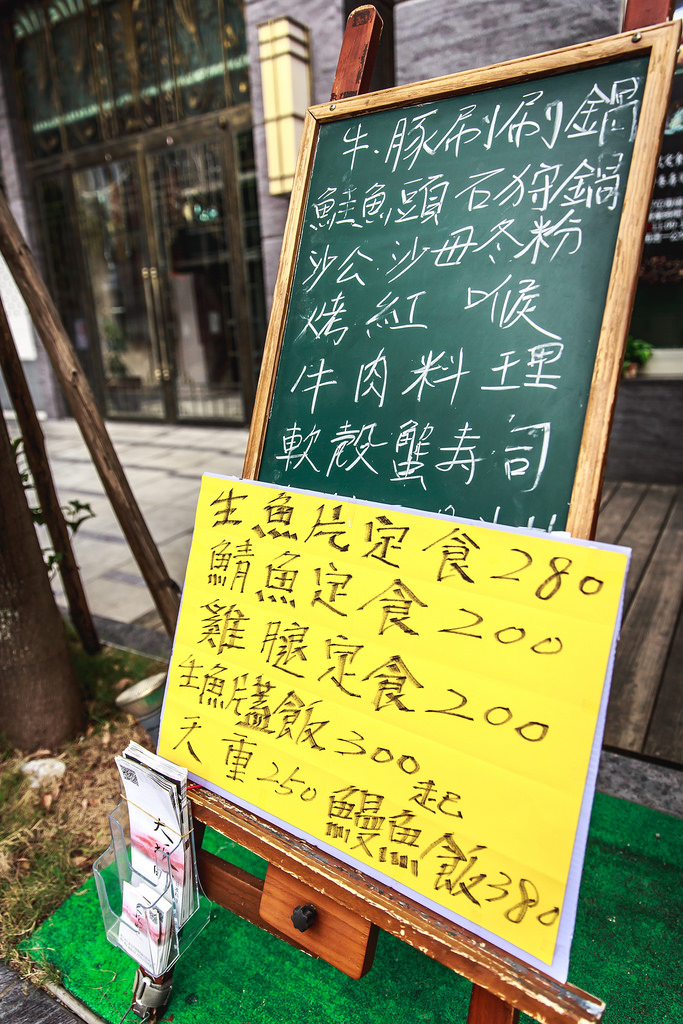 牛.豚刷刷鍋
鮭魚頭石狩鍋
沙公.沙母冬粉
烤紅喉
牛肉料理
軟殼蟹寿司
生魚片定食280
鯖魚定食200
雞腿定食200
生魚片蓋飯300起
天重250 鰻魚飯380